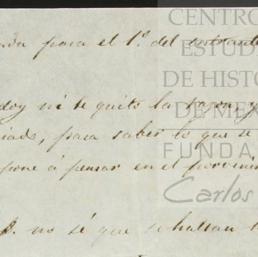 para el 1º. del entrante
doy ni te quito la razon, y
para saber lo que se
pone á pensar en el porvenir
no sé que se hallan
CENTRO
ESTUD
DE HISTO
DE MEX
FUNDA
Carlos